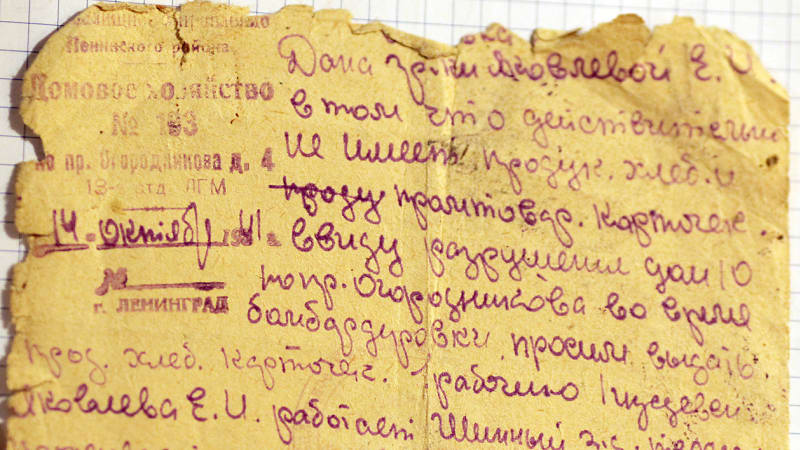 Ленинского района
Домовое хозяйство
№ 193
по пр. Огородникова д. 4
13-е отд. ЛГМ
14 октябр 1941 г.
№
г. ЛЕНИНГРАД
Дана гр-ки Яковлевой Е. И.
в том что действительно
не имеет продук. хлеб. и
проду промтовар. карточек.
ввиду разрушения дом 10
по пр. Огородникова во время
бомбардировки просим выдать
прод. хлеб. карточек. рабочию
Яковлева Е. И. работает Шинный